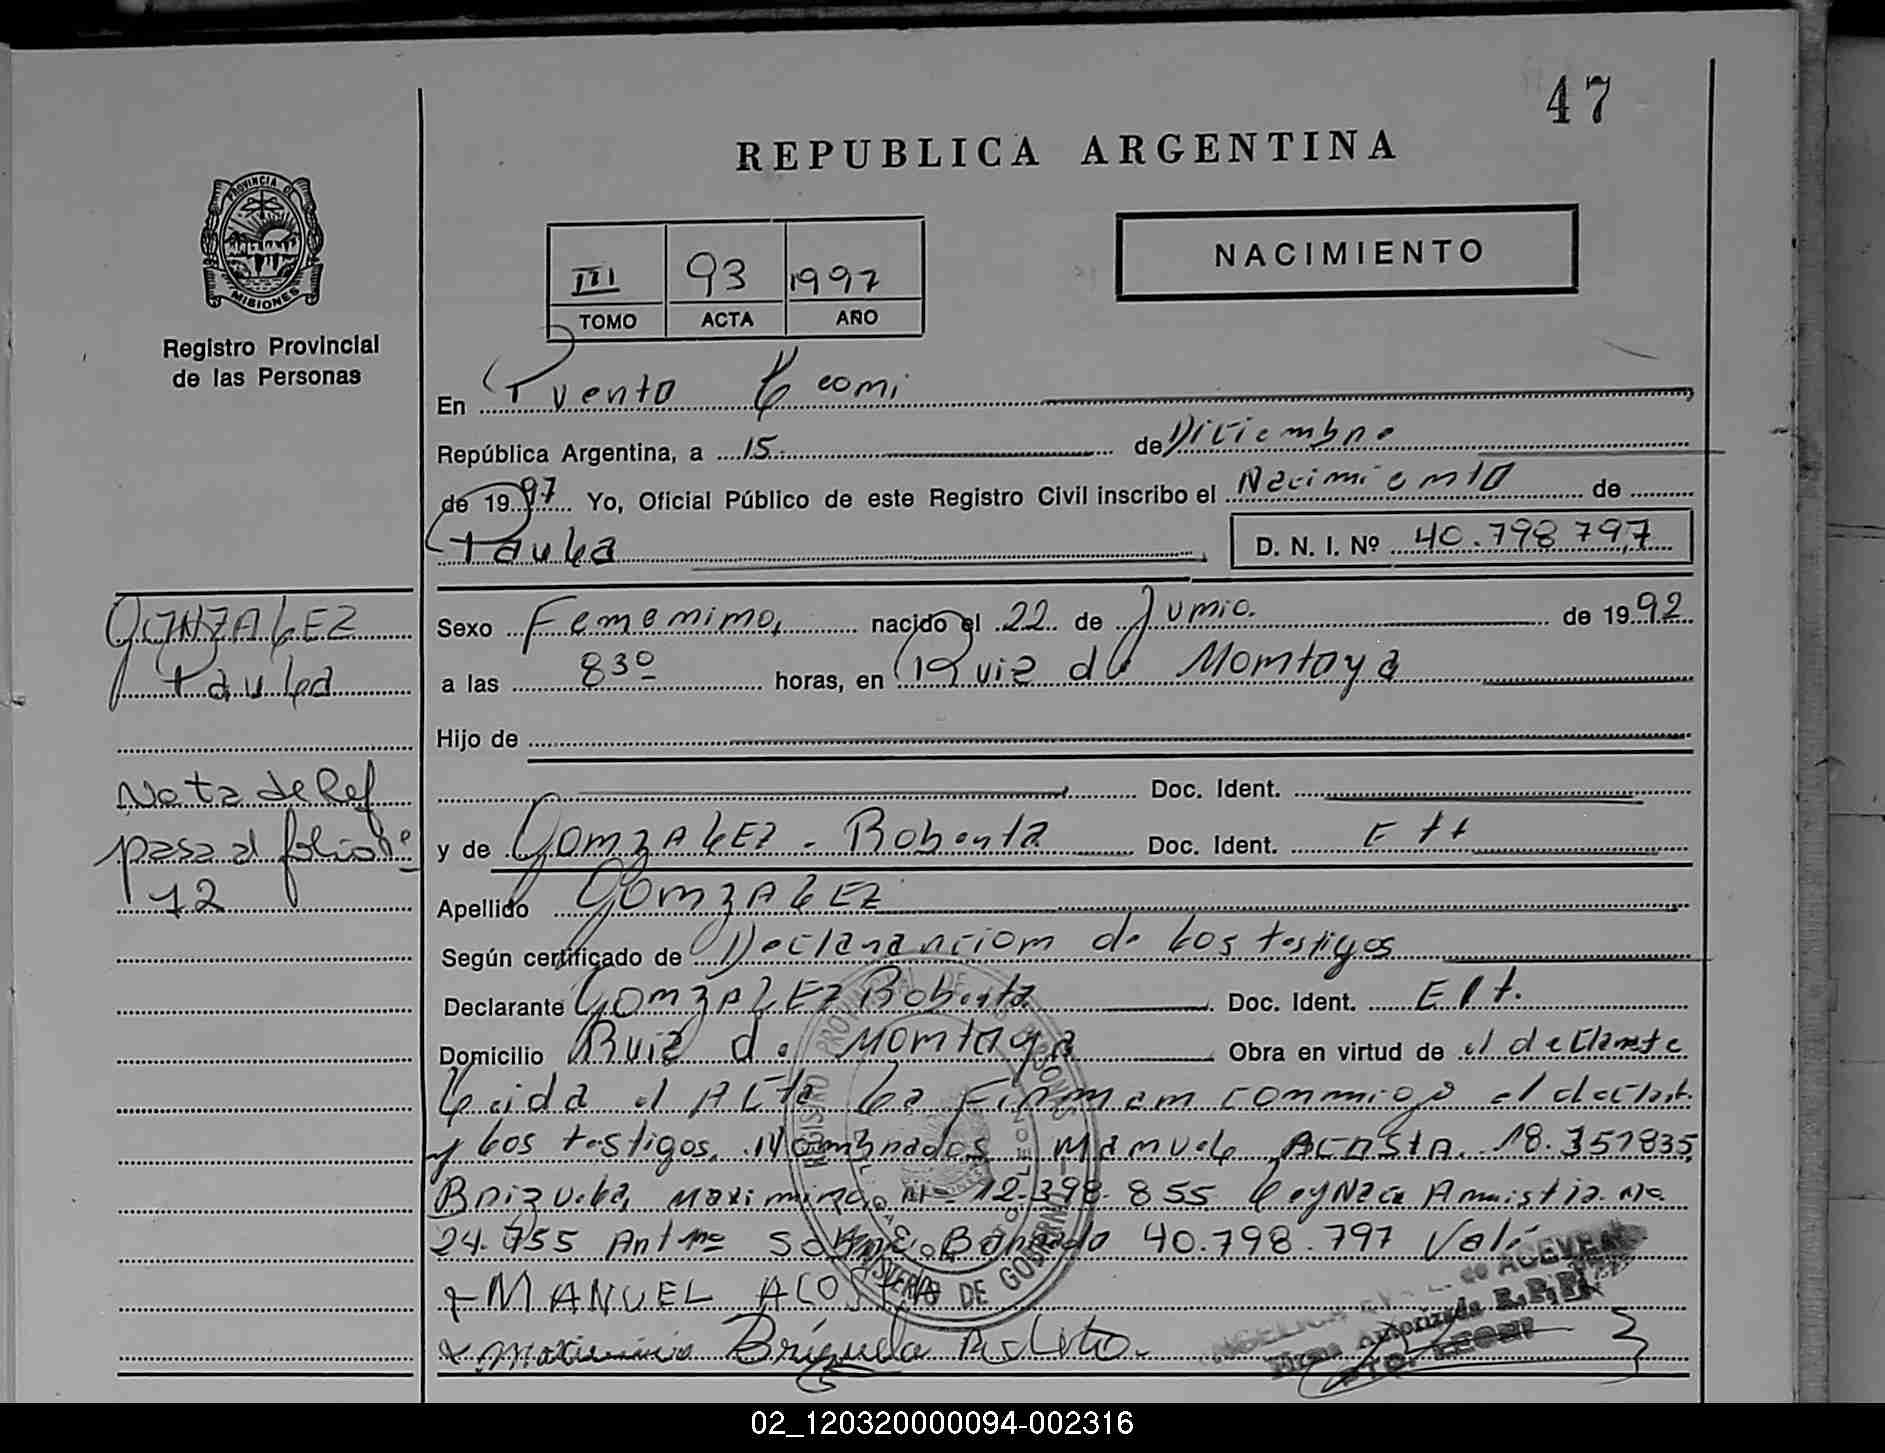 47
REPUBLICA ARGENTINA
PROVINCIA DE
MISIONES
NACIMIENTO
III 93 1997
TOMO ACTA AÑO
Registro Provincial
de las Personas
En Puerto Leoni
República Argentina, a 15 de Diciembre
de 1997 Yo, Oficial Público de este Registro Civil inscribo el Nacimiento de
Paula D. N. I. Nº 40.798.797
GONZALEZ
Paula
Sexo Femenino, nacido el 22 de Junio. de 1992
a las 8 30 horas, en Ruiz de Montoya
Hijo de
Doc. Ident.
Nota de Ref
pasa al folio nº
12
y de GONZALEZ - Roberta Doc. Ident.
Apellido GONZALEZ
Según certificado de Declaranciom de los testigos
Declarante GONZALEZ Roberta Doc. Ident.
Domicilio Ruiz de Montoya Obra en virtud de el declarate
Leida el Acta la Firmam conmigo el declat.
y los testigos. Nombrados Manuel ACOSTA. 18.357835
Brizuela, Maximino nº 12.398.855 Ley Nac Amnistia. Nº
24.755 Borrado 40.798.797 Vale
MANUEL ACOSTA
Brizuela
REGISTRO PROVINCIAL DE LAS PERSONAS
MINISTERIO DE GOBIERNO
de ACEVEDO
Firma Autorizada R.P.P.
PTO. LEONI
02_120320000094-002316